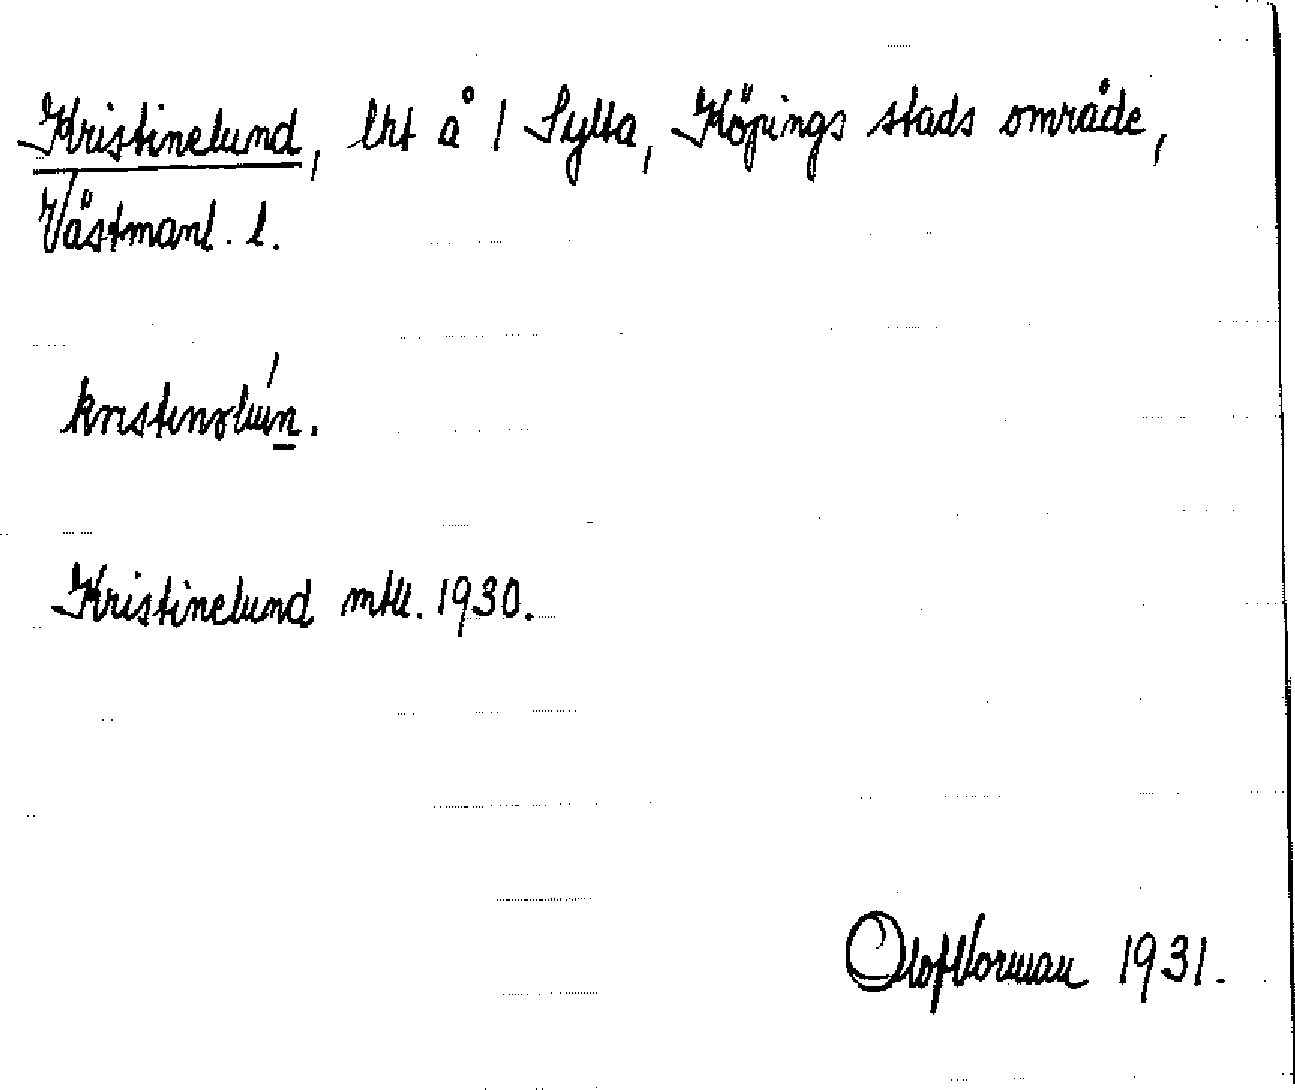 Kristinelund, lht å 1 Sylta, Köpings stads område,
Västmanl. l.
kristinəlún.
Kristinelund mtl. 1930.
Olof Vorman 1931.